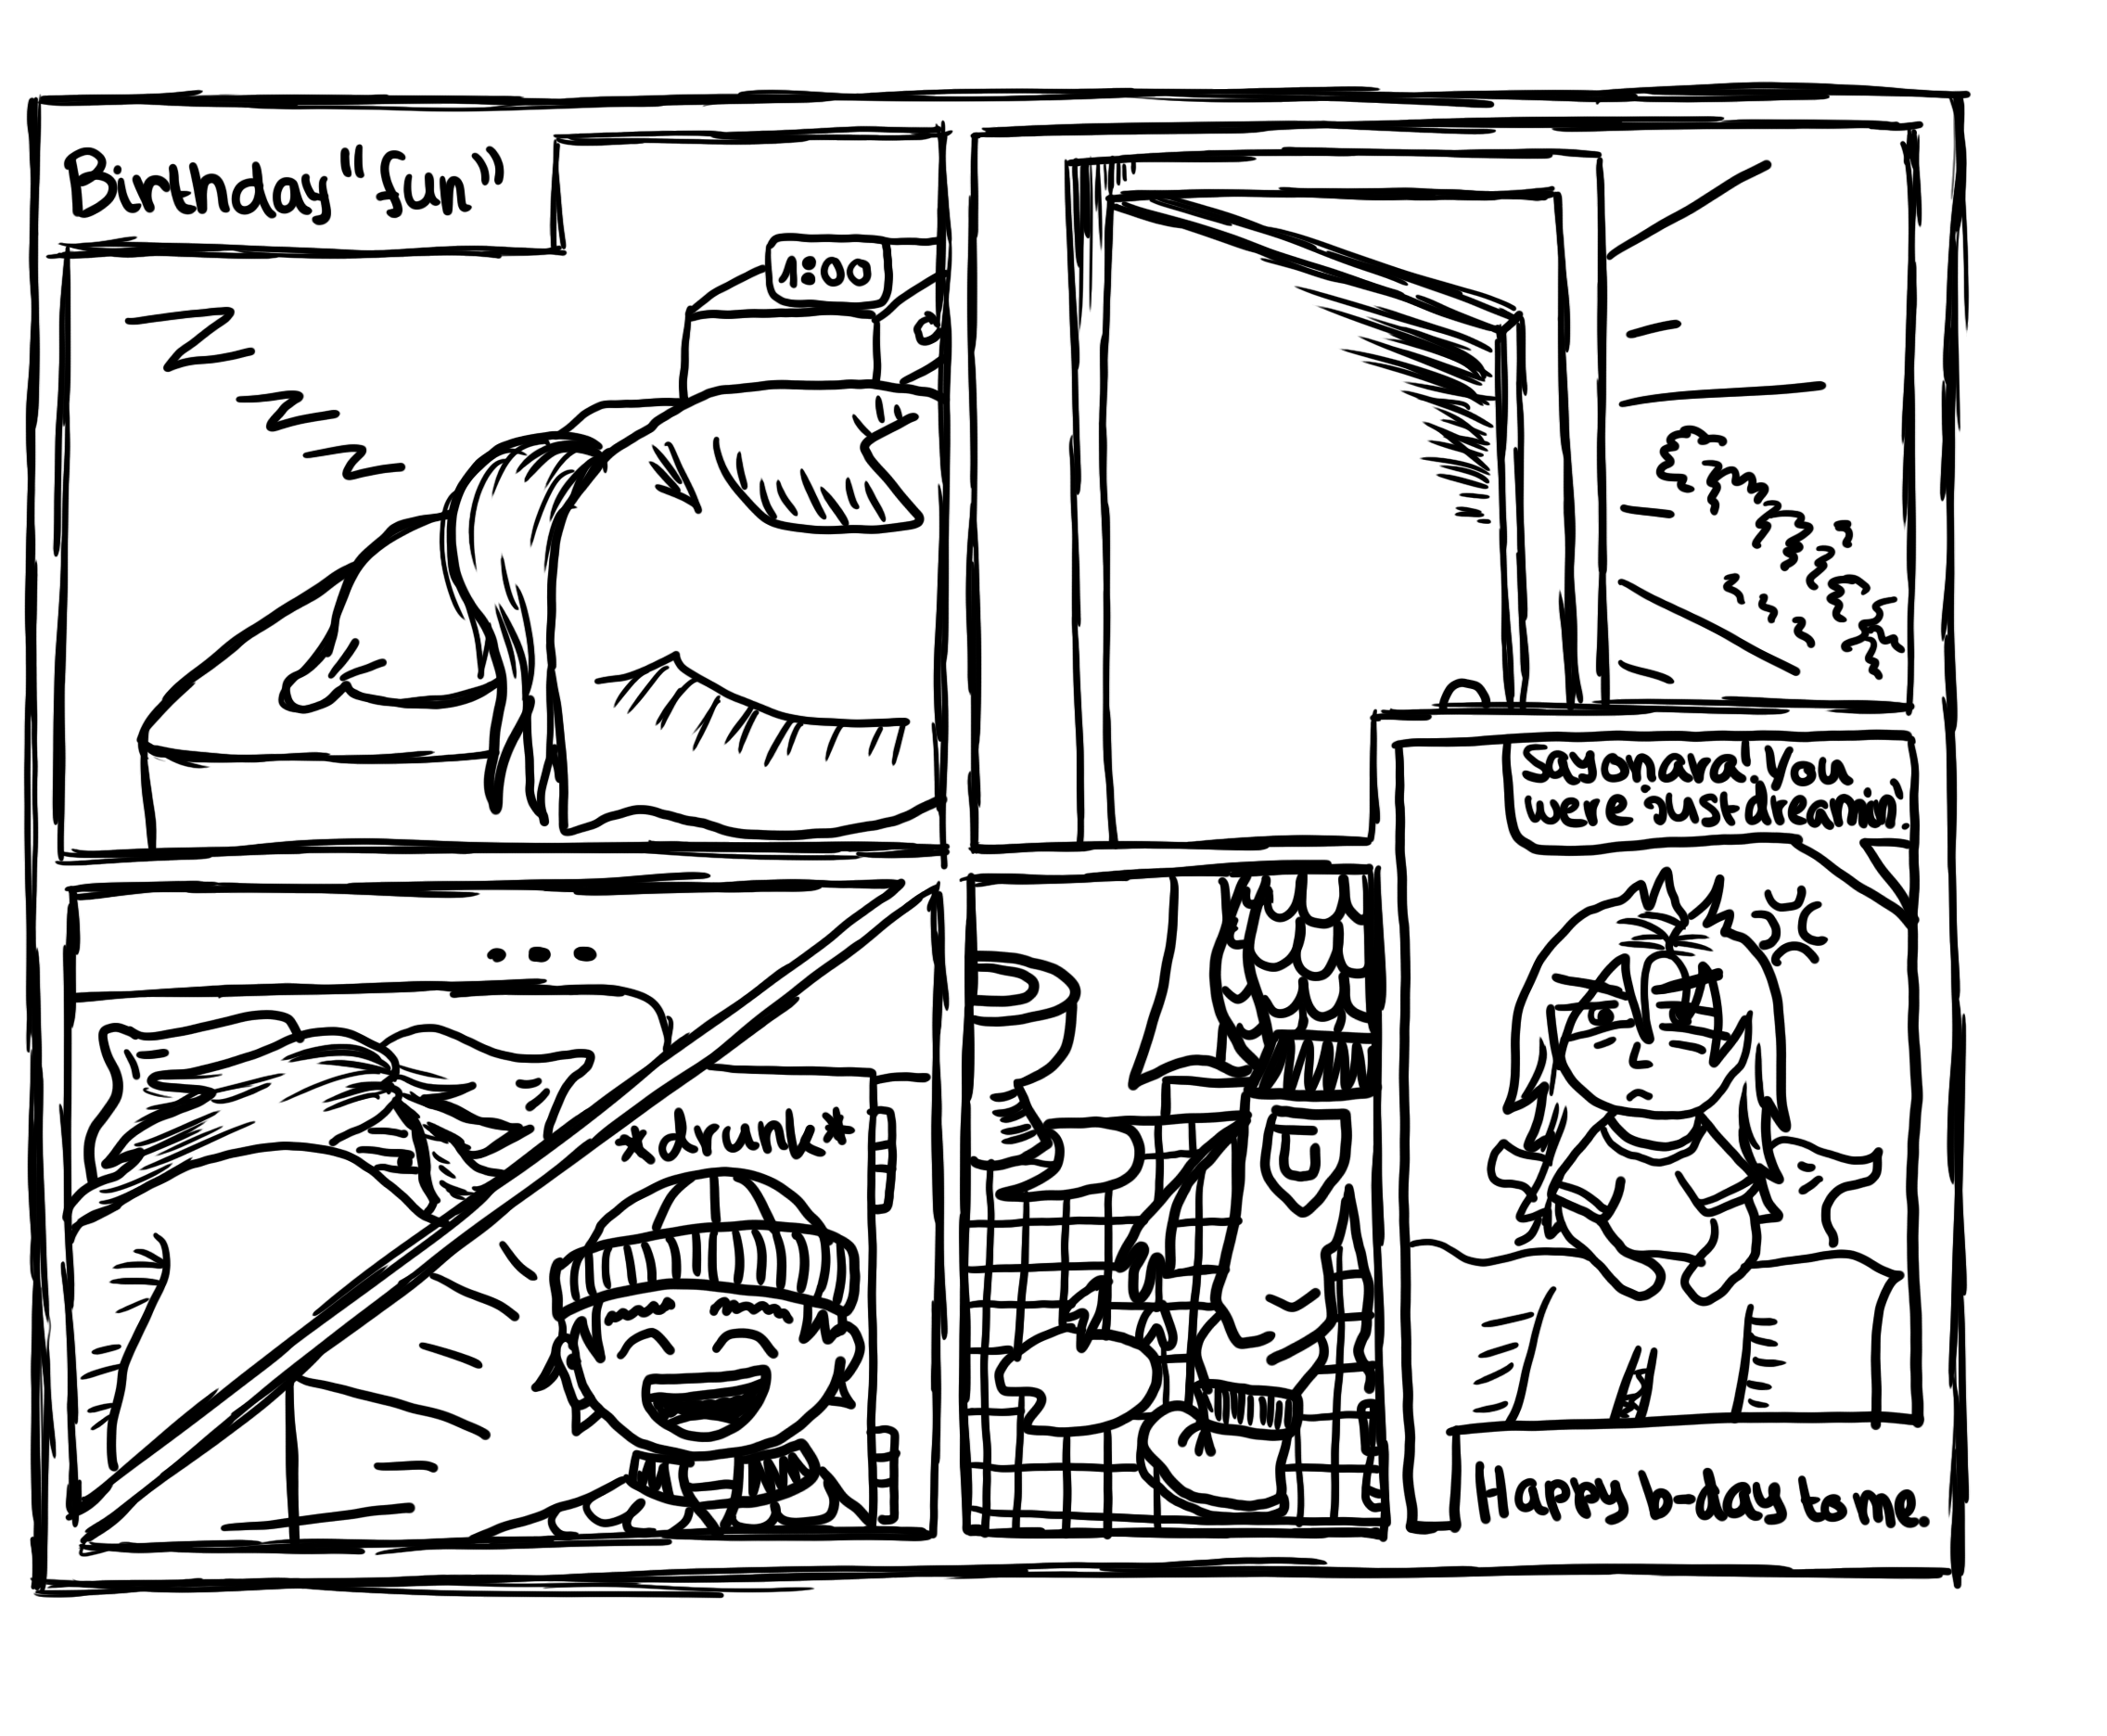 Birthday "fun"
1:00
z z z
...
*drunk*
Sayonara! You
were just dreamin'.
Happy b-day to me.